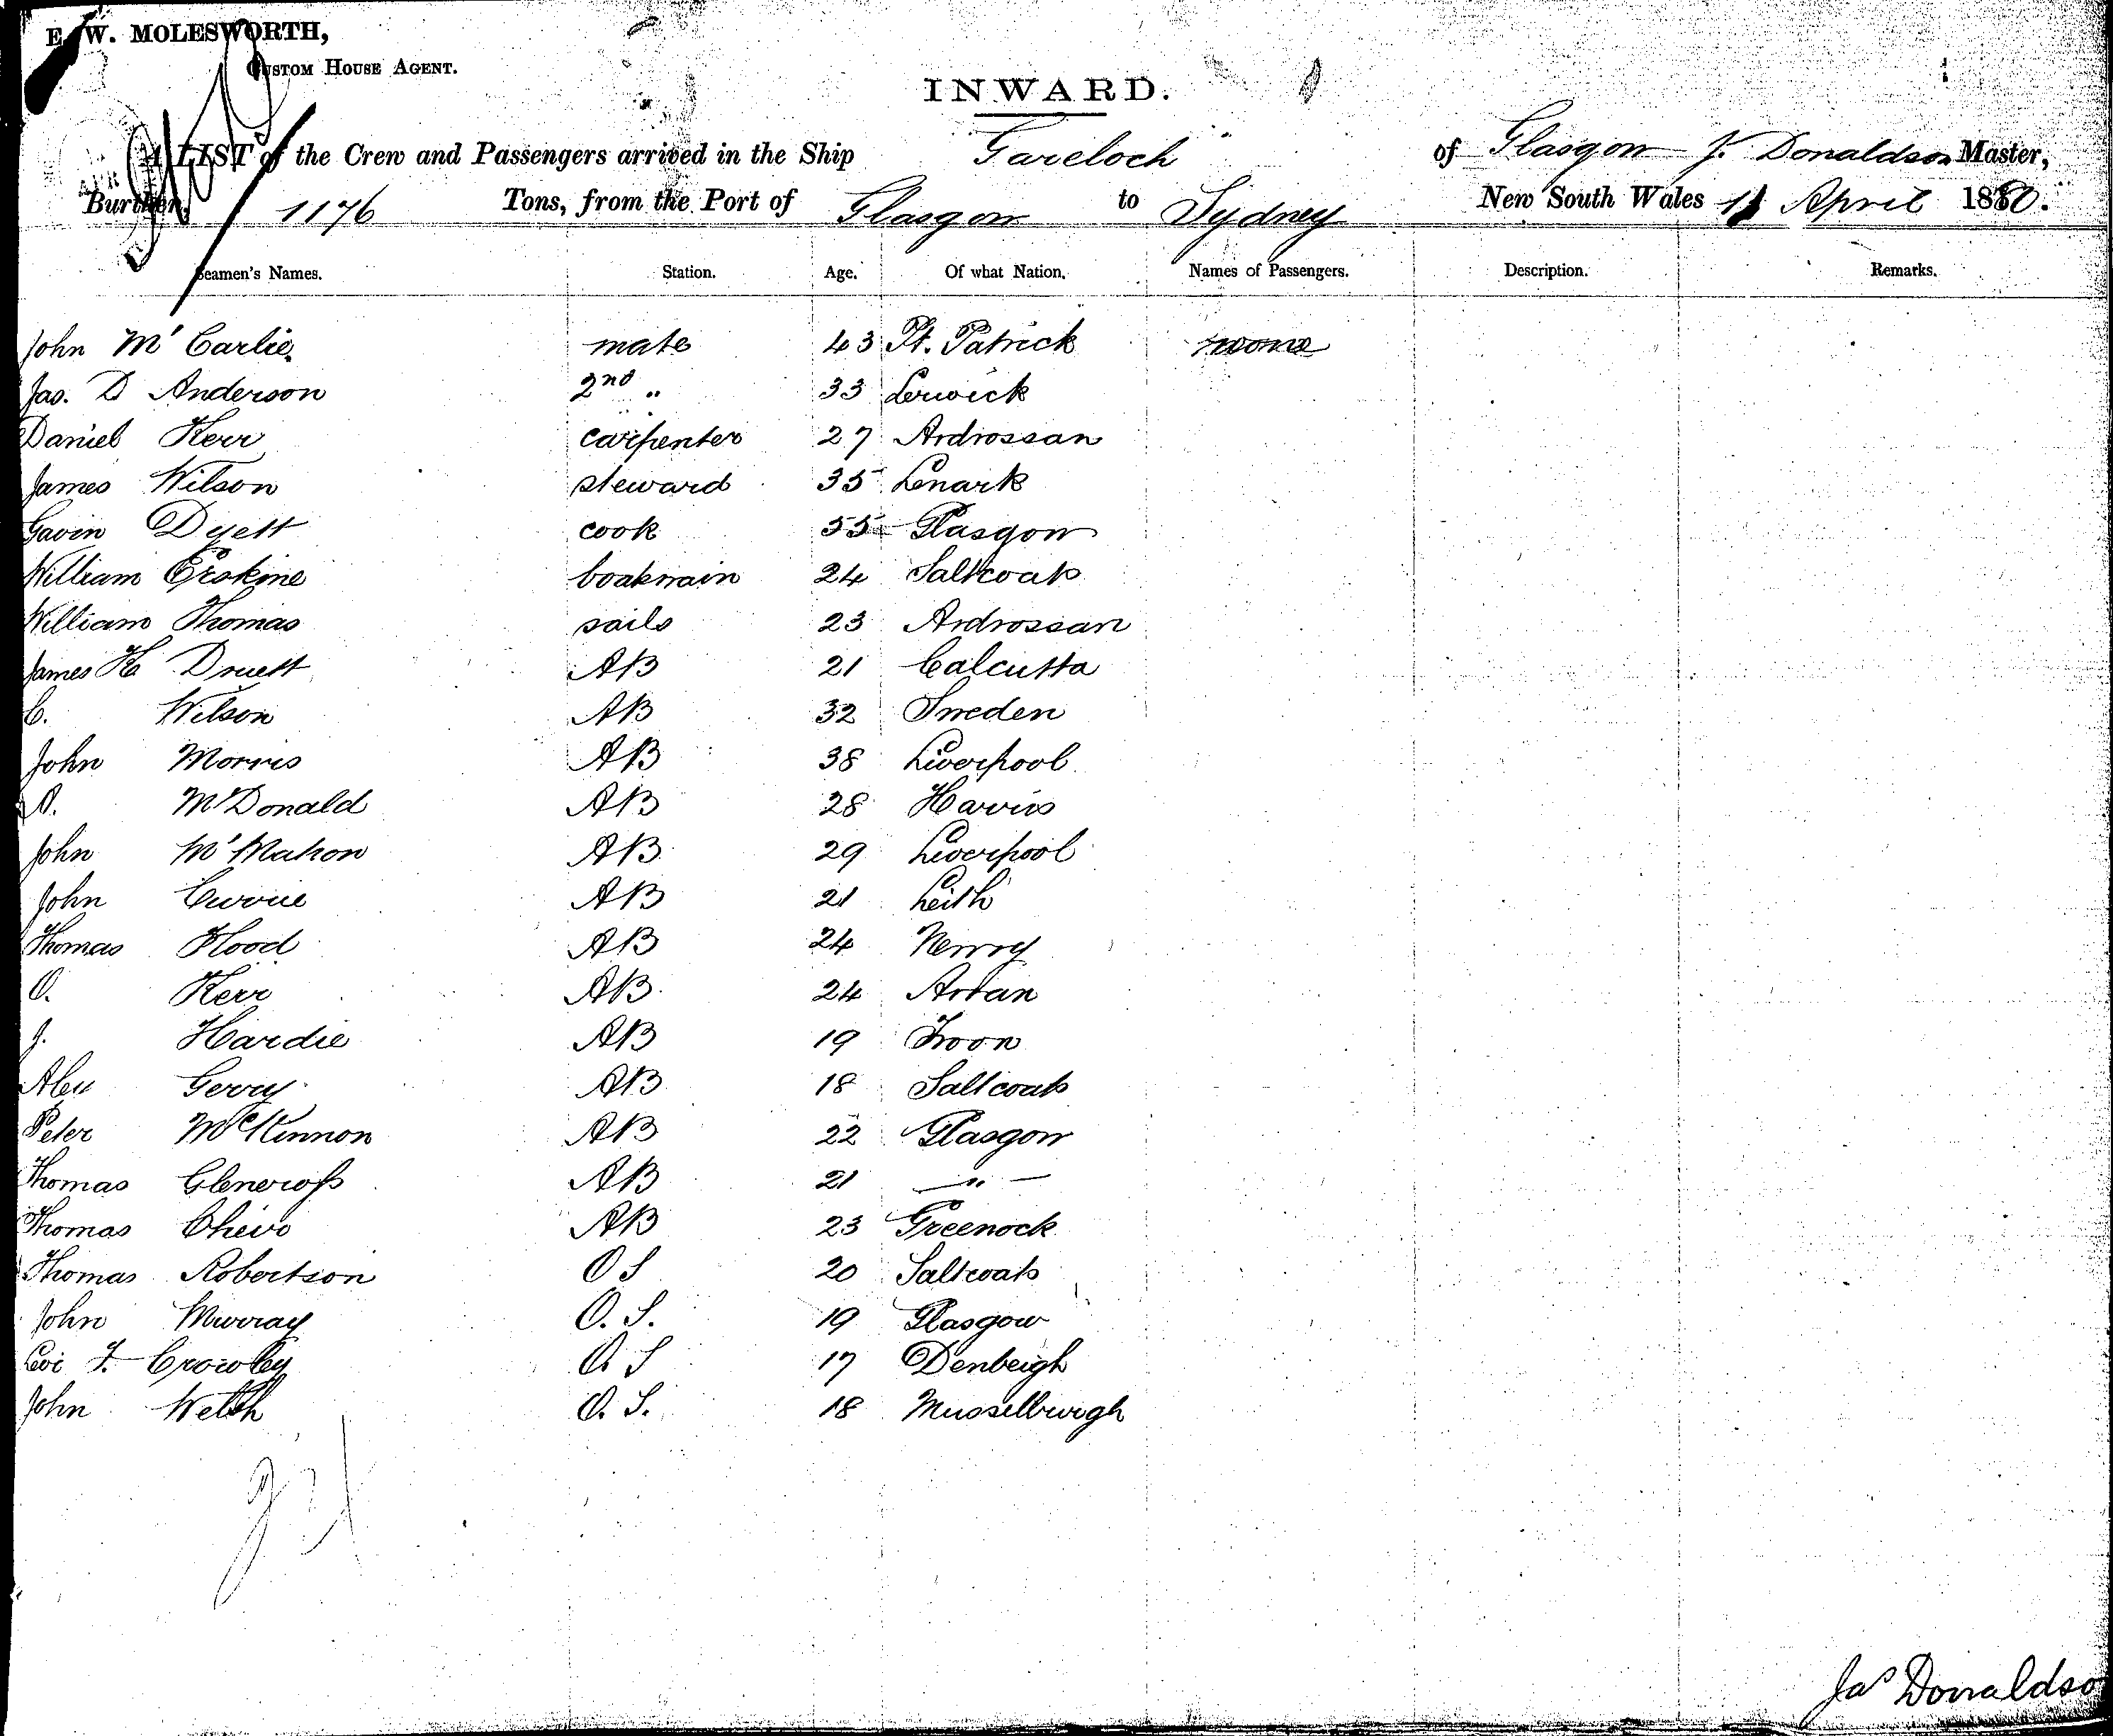 E. W. MOLESWORTH,
CUSTOM HOUSE AGENT.
INWARD.
A LIST of the Crew and Passengers arrived in the Ship Gareloch of Glasgow J. Donaldson Master,
Burthen, 1176 Tons, from the Port of Glasgow to Sydney New South Wales 11 April 1880.
Seamen's Names. Station. Age. Of what Nation. Names of Passengers. Description. Remarks.
John Mc Carlie mate 43 Pt. Patrick none
Jas. D Anderson 2nd " 33 Lerwick
Daniel Kerr carpenter 27 Ardrossan
James Wilson steward 35 Lenark
Gavin Dyett cook 55 Glasgow
William Erskine boatswain 24 Saltcoats
William Thomas sails 23 Ardrossan
James H Druett AB 21 Calcutta
C. Wilson AB 32 Sweden
John Morris AB 38 Liverpool
McDonald AB 28 Harris
John McMahon AB 29 Liverpool
John Currie AB 21 Leith
Thomas Hood AB 24 Newry
O. Kerr AB 24 Arran
J. Hardie AB 19 Troon
Alex Gerry AB 18 Saltcoats
Peter McKinnon AB 22 Glasgow
Thomas Glencross AB 21 — " —
Thomas AB 23 Greenock
Thomas Robertson O S 20 Saltcoats
John Murray O. S. 19 Glasgow
Levi F. Crowley O S 17 Denbeigh
John Welsh O. S. 18 Musselburgh
Jas Donaldso